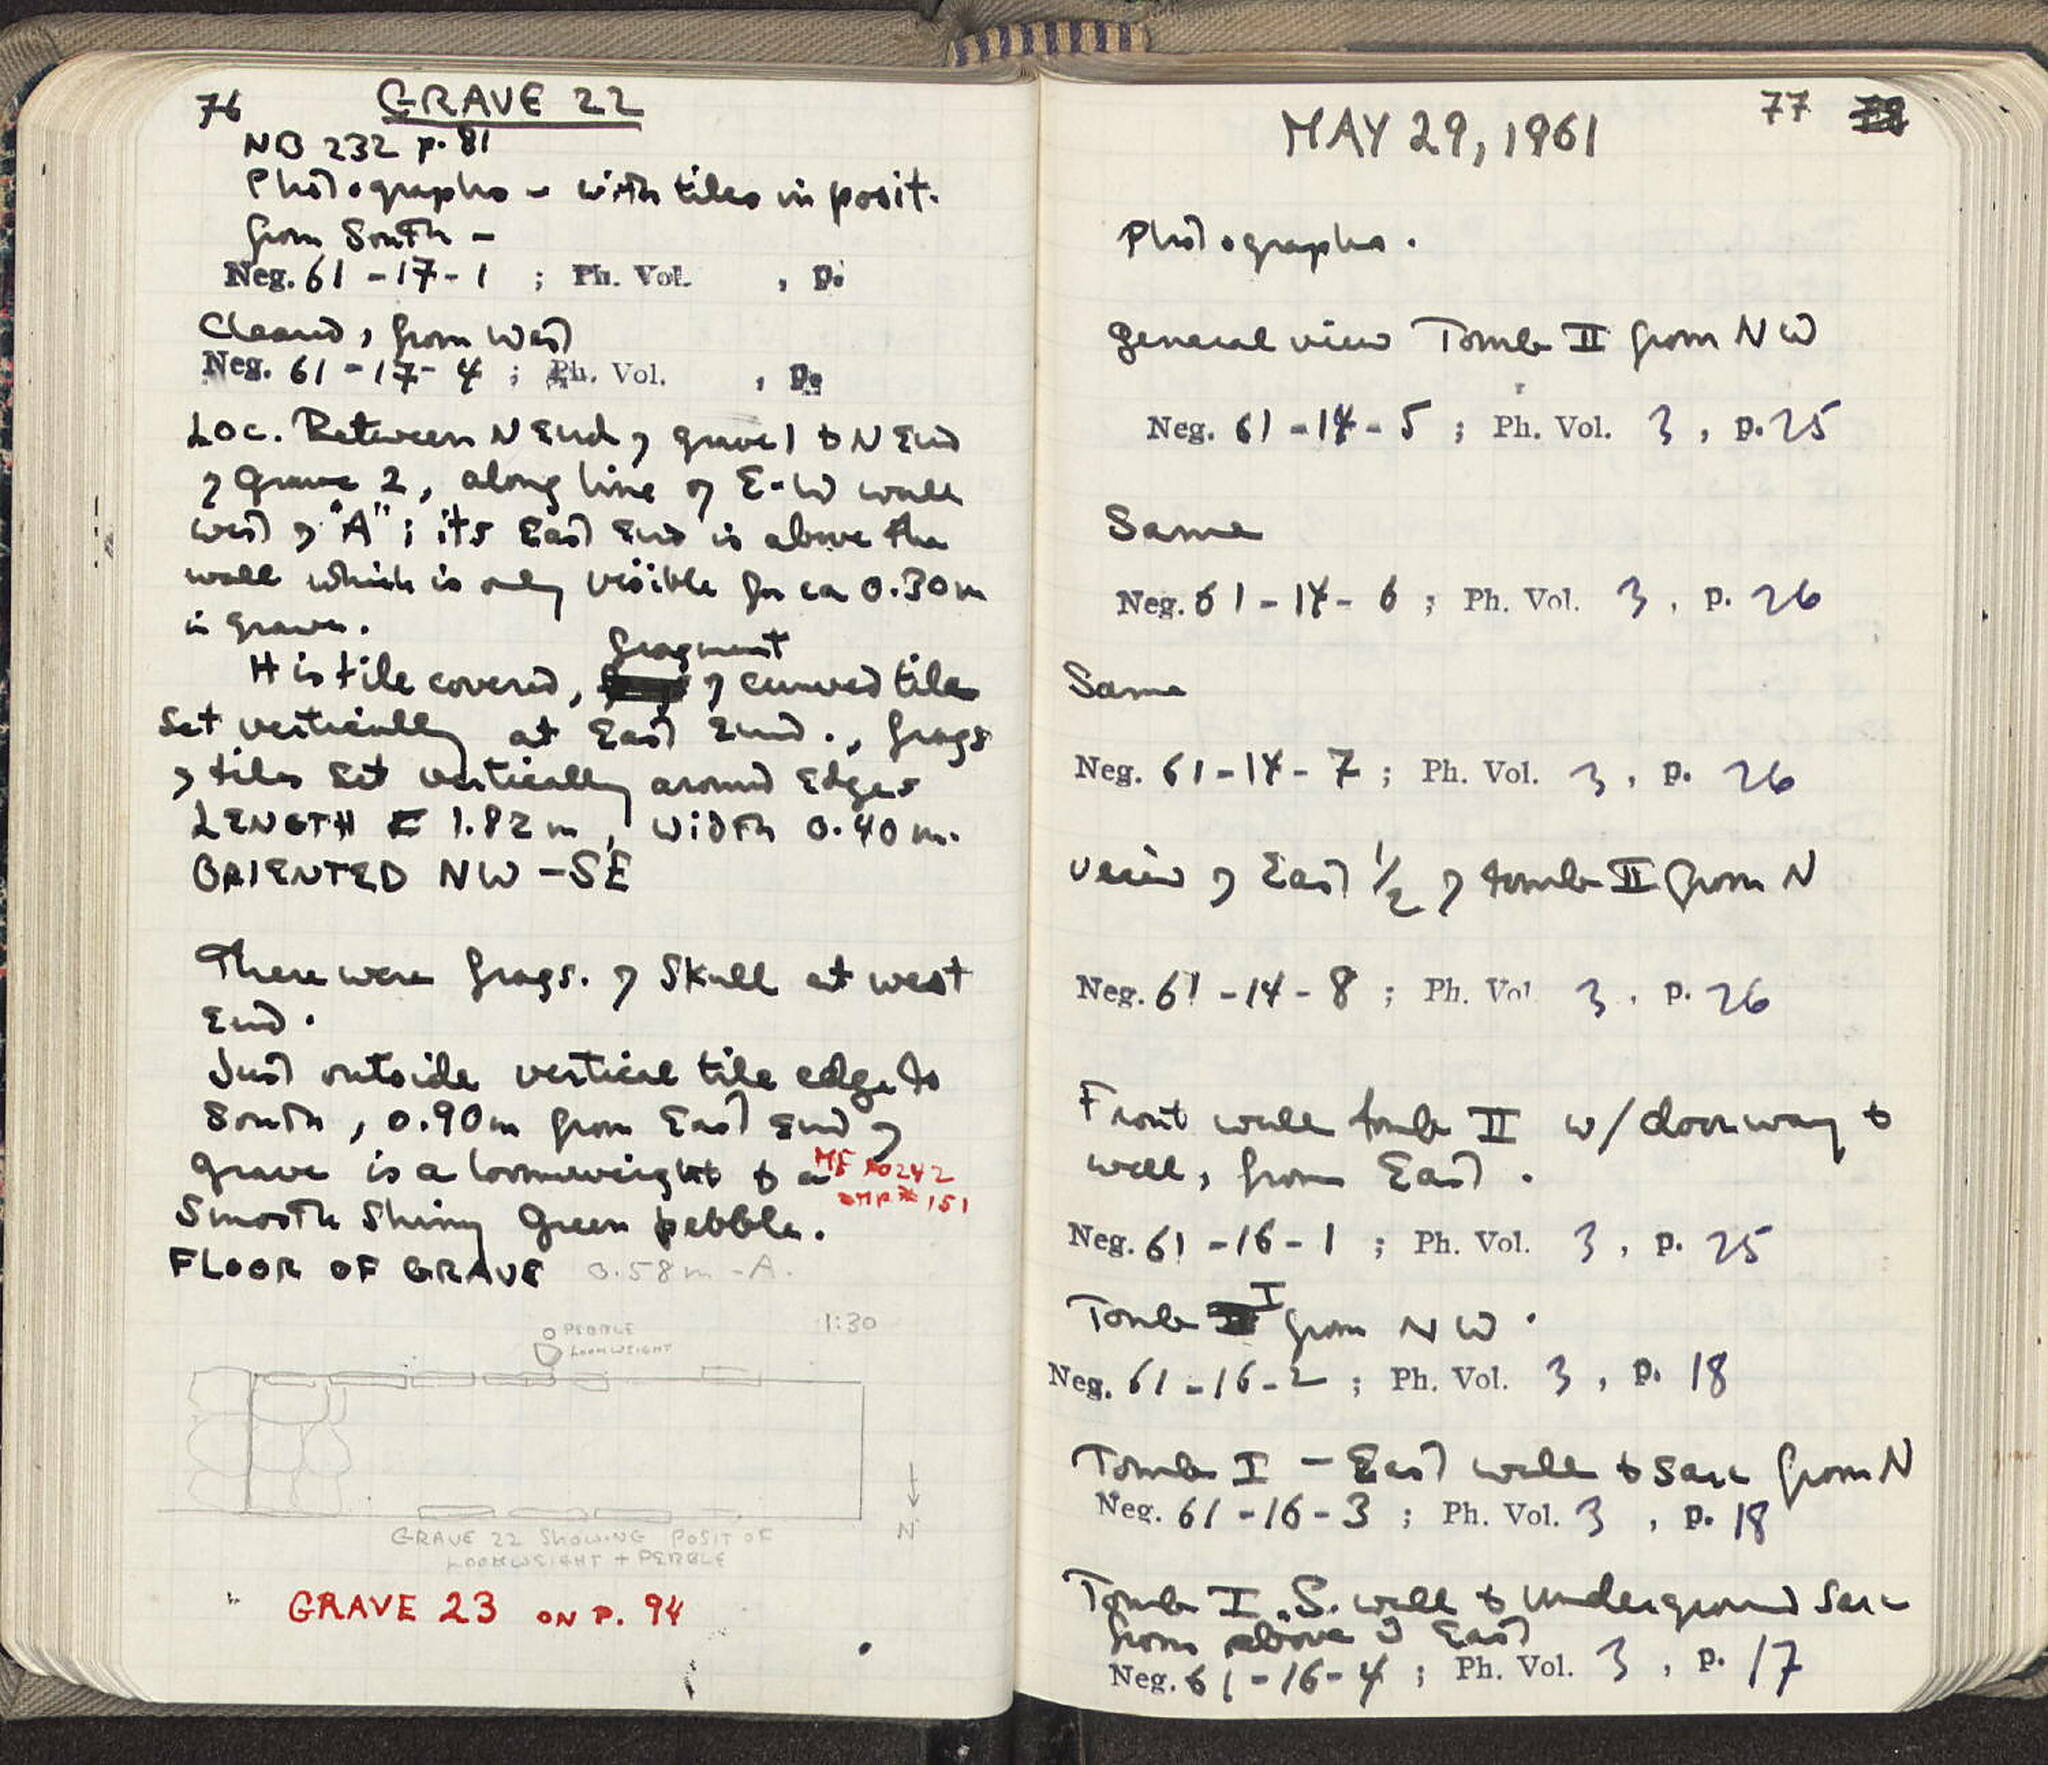 76 GRAVE 22
NB 232 p. 81
Photographs - with tiles in posit.
from South -
Neg. 61 - 17 - 1 ; Ph. Vol. , p.
Cleaned, from West
Neg. 61 - 17 - 4 ; Ph. Vol. , p.
Loc. Between N End of grave 1 & N End
of Grave 2, along line of E-W wall
west of "A"; its East End is above the
wall which is only visible for ca 0.30m
in grave.
fragment
It is tile covered, of curved tile
set vertically at East End., frags
of tiles set vertically around Edges
LENGTH 1.82m, WIDTH 0.40m.
ORIENTED NW - SE
There were frags. of Skull at west
End.
Just outside vertical tile edge to
South, 0.90m from East End of
grave is a loomweight & a MF 10242
Smooth Shiny Green pebble.
FLOOR OF GRAVE 0.58m - A.
1:30
PEBBLE
LOOMWEIGHT
N
GRAVE 22 SHOWING POSIT OF
LOOMWEIGHT + PEBBLE
GRAVE 23 ON P. 94
77
MAY 29, 1961
Photographs.
General view Tomb II from NW
Neg. 61 - 14 - 5 ; Ph. Vol. 3 , p. 25
Same
Neg. 61 - 14 - 6 ; Ph. Vol. 3 , p. 26
Same
Neg. 61 - 14 - 7 ; Ph. Vol. 3 , p. 26
View of East 1/2 of tomb II from N
Neg. 61 - 14 - 8 ; Ph. Vol. 3 , p. 26
Front wall tomb II w/ doorway &
well, from East.
Neg. 61 - 16 - 1 ; Ph. Vol. 3 , p. 25
Tomb I from NW.
Neg. 61 - 16 - 2 ; Ph. Vol. 3 , p. 18
Tomb I - East wall & sarc from N
Neg. 61 - 16 - 3 ; Ph. Vol. 3 , p. 18
Tomb I. S. wall & underground Sarc
from above East
Neg. 61 - 16 - 4 ; Ph. Vol. 3 , p. 17